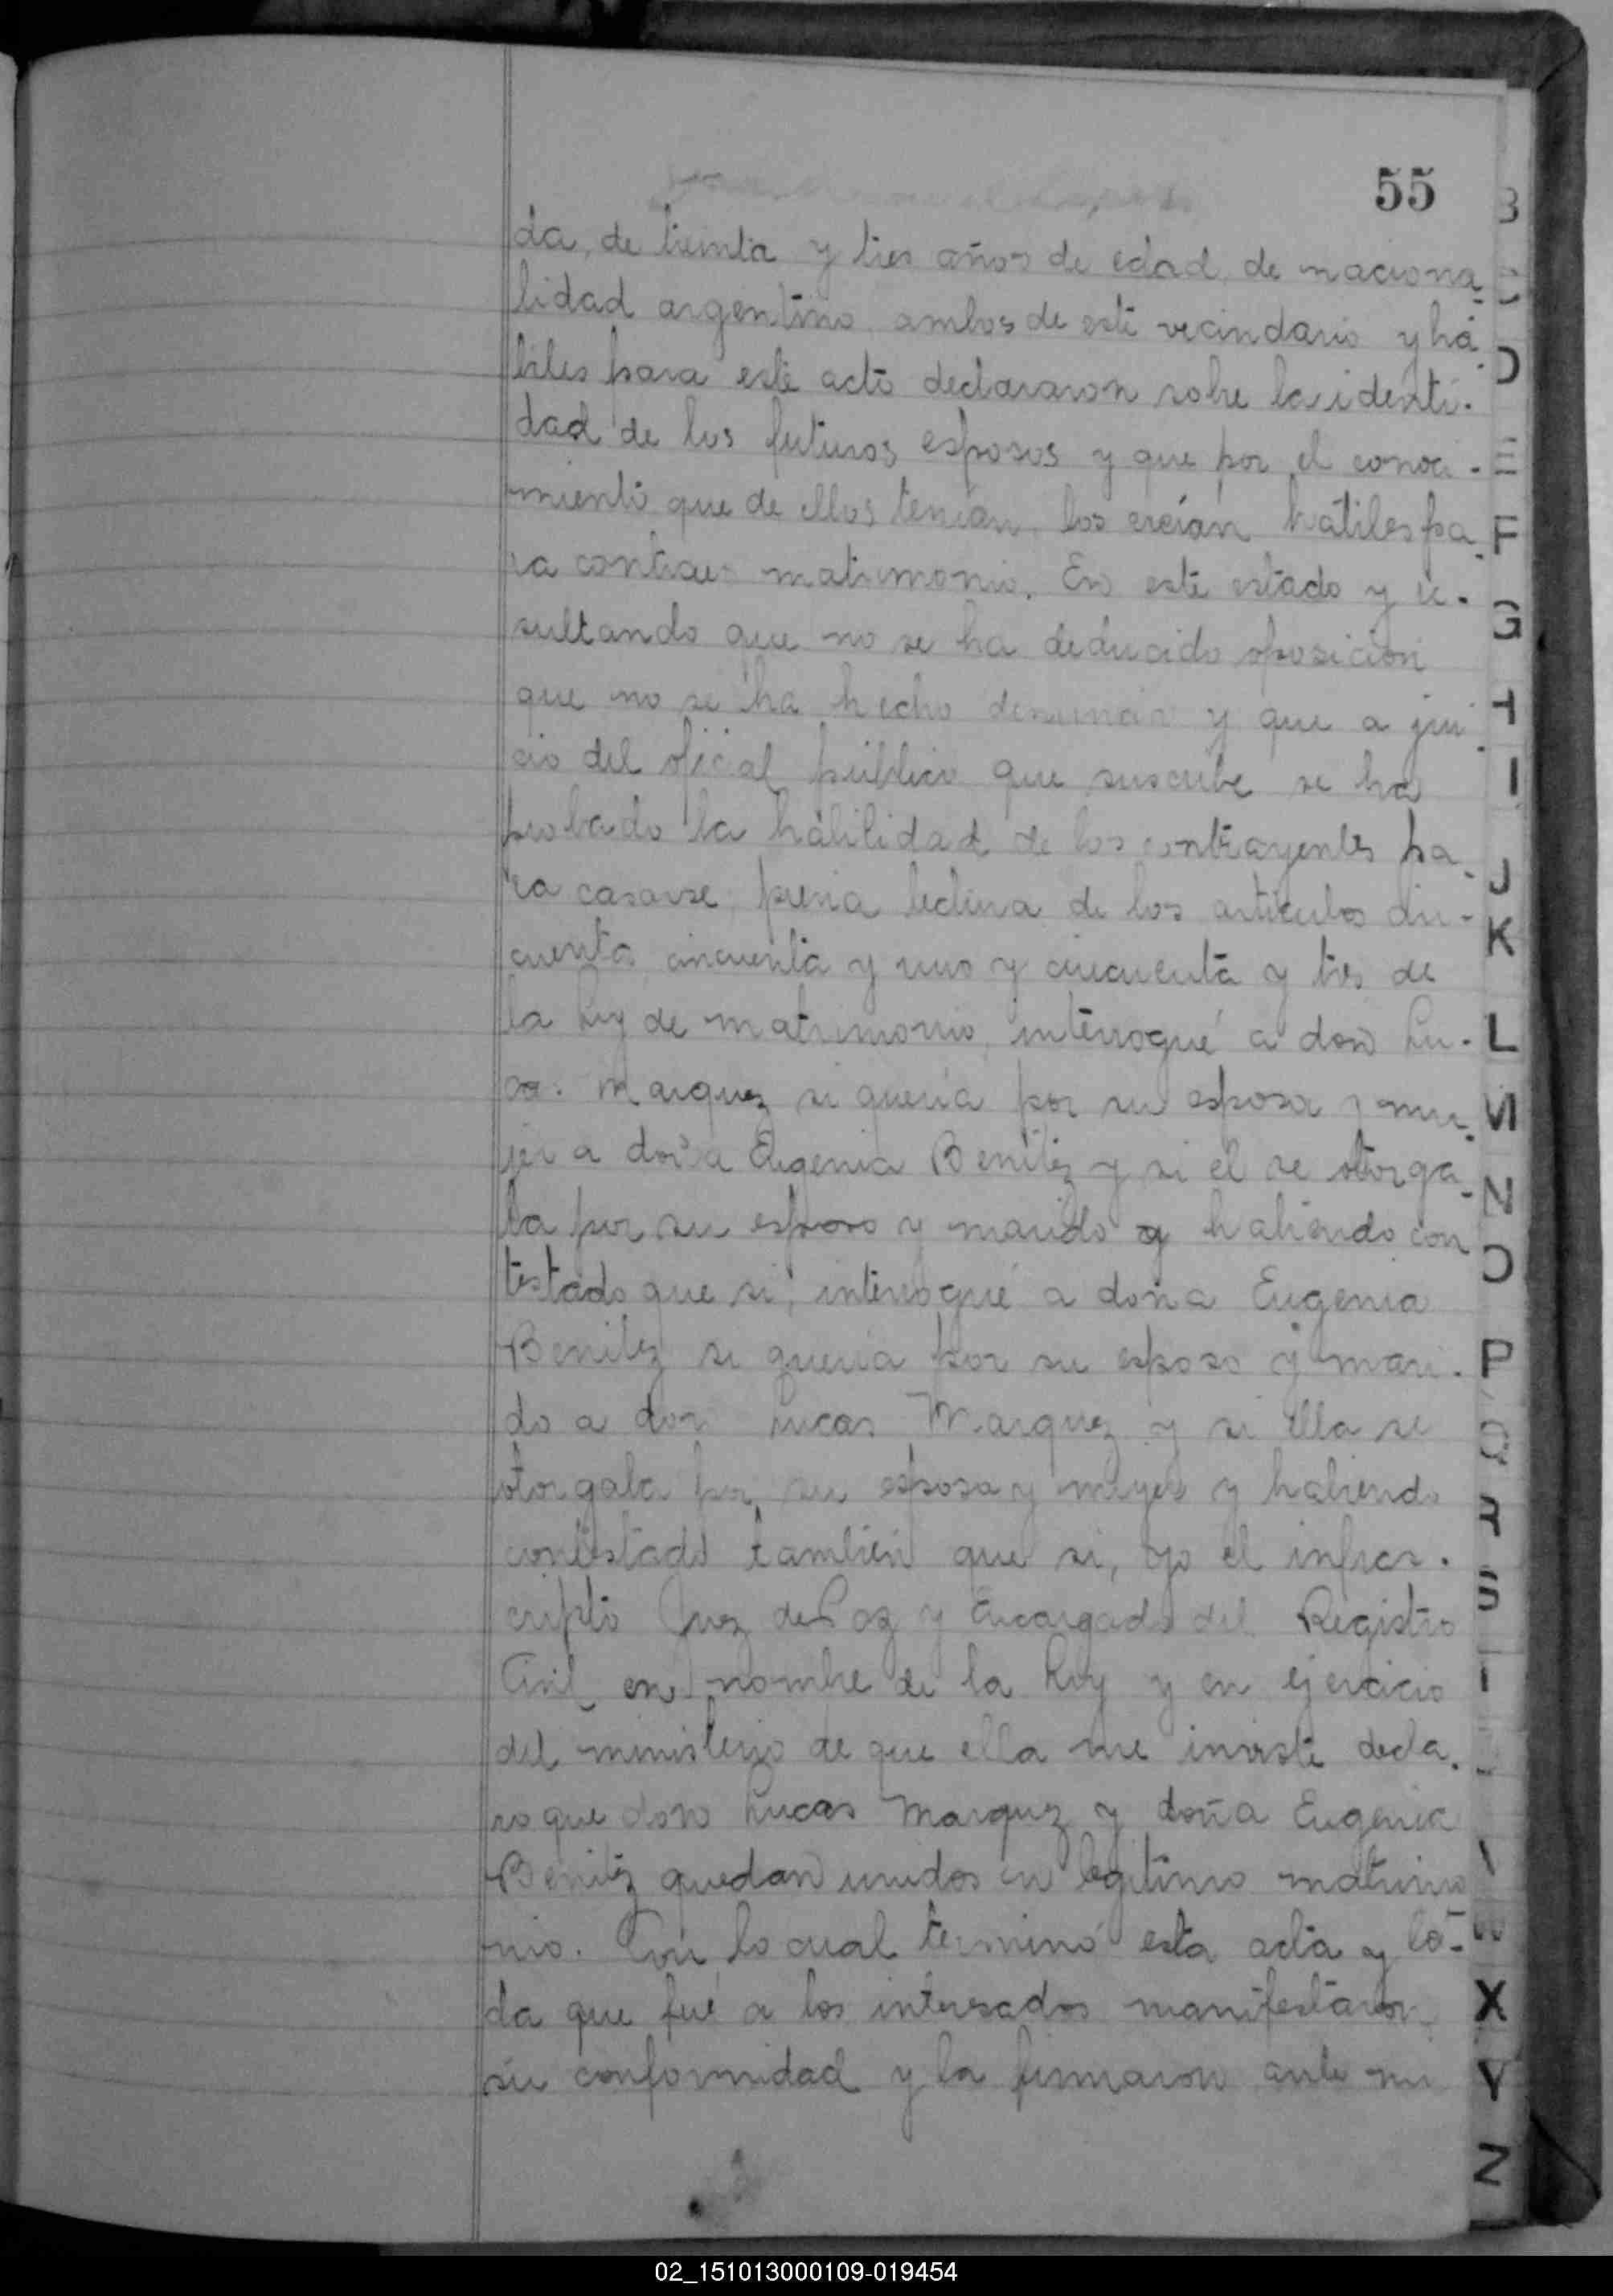 55
da, de treinta y tres años de edad, de naciona-
lidad argentino, ambos de este vecindario y há-
biles para este acto declararon sobre la identi-
dad de los futuros esposos y que por el conoci-
miento que de ellos tenían, los creían hábiles pa-
ra contraer matrimonio. En este estado y re-
sultando que no se ha deducido oposición
que no se ha hecho denuncia y que a jui-
cio del oficial público que suscribe se ha
probado la hábilidad de los contrayentes pa-
ra casarse, previa lectura de los artículos cin-
cuenta, cincuenta y uno y cincuenta y tres de
la Ley de matrimonio, interrogué a don Lu-
cas Marquez si quería por su esposa y mu-
jer a doña Eugenia Benitez y si el se otorga-
ba por su esposo y marido y habiendo con
testado que si, interrogué a doña Eugenia
Benitez si quería por su esposo y mari-
do a don Lucas Marquez y si ella se
otorgaba por su esposa y mujer y habiendo
contestado también que si, yo el infras-
cripto Juez de Paz y Encargado del Registro
Civil en nombre de la Ley y en ejercicio
del ministerio de que ella me inviste decla-
ro que don Lucas Marquez y doña Eugenia
Benitez quedan unidos en legítimo matrimo
nio. Con lo cual terminó esta acta y leí-
da que fué a los interesados manifestaron
su conformidad y la firmaron ante mi
B
C
D
E
F
G
H
I
J
K
L
M
N
O
P
Q
R
S
T
V
W
X
Y
Z
02_151013000109-019454